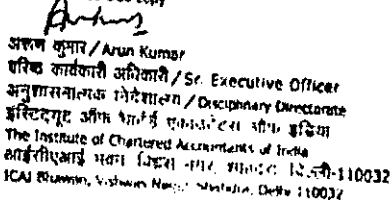 copy
अरुण कुमार / Arun Kumar
वरिष्ठ कार्यकारी अधिकारी / Sr. Executive Officer
अनुशासनात्मक निदेशालय / Disciplinary Directorate
इंस्टिट्यूट ऑफ चार्टर्ड एकाउंटेंट्स ऑफ इंडिया
The Institute of Chartered Accountants of India
आईसीएआई भवन विश्वास नगर, शाहदरा दिल्ली-110032
ICAI Bhawan, Vishwas Nagar, Shahdra, Delhi 110032